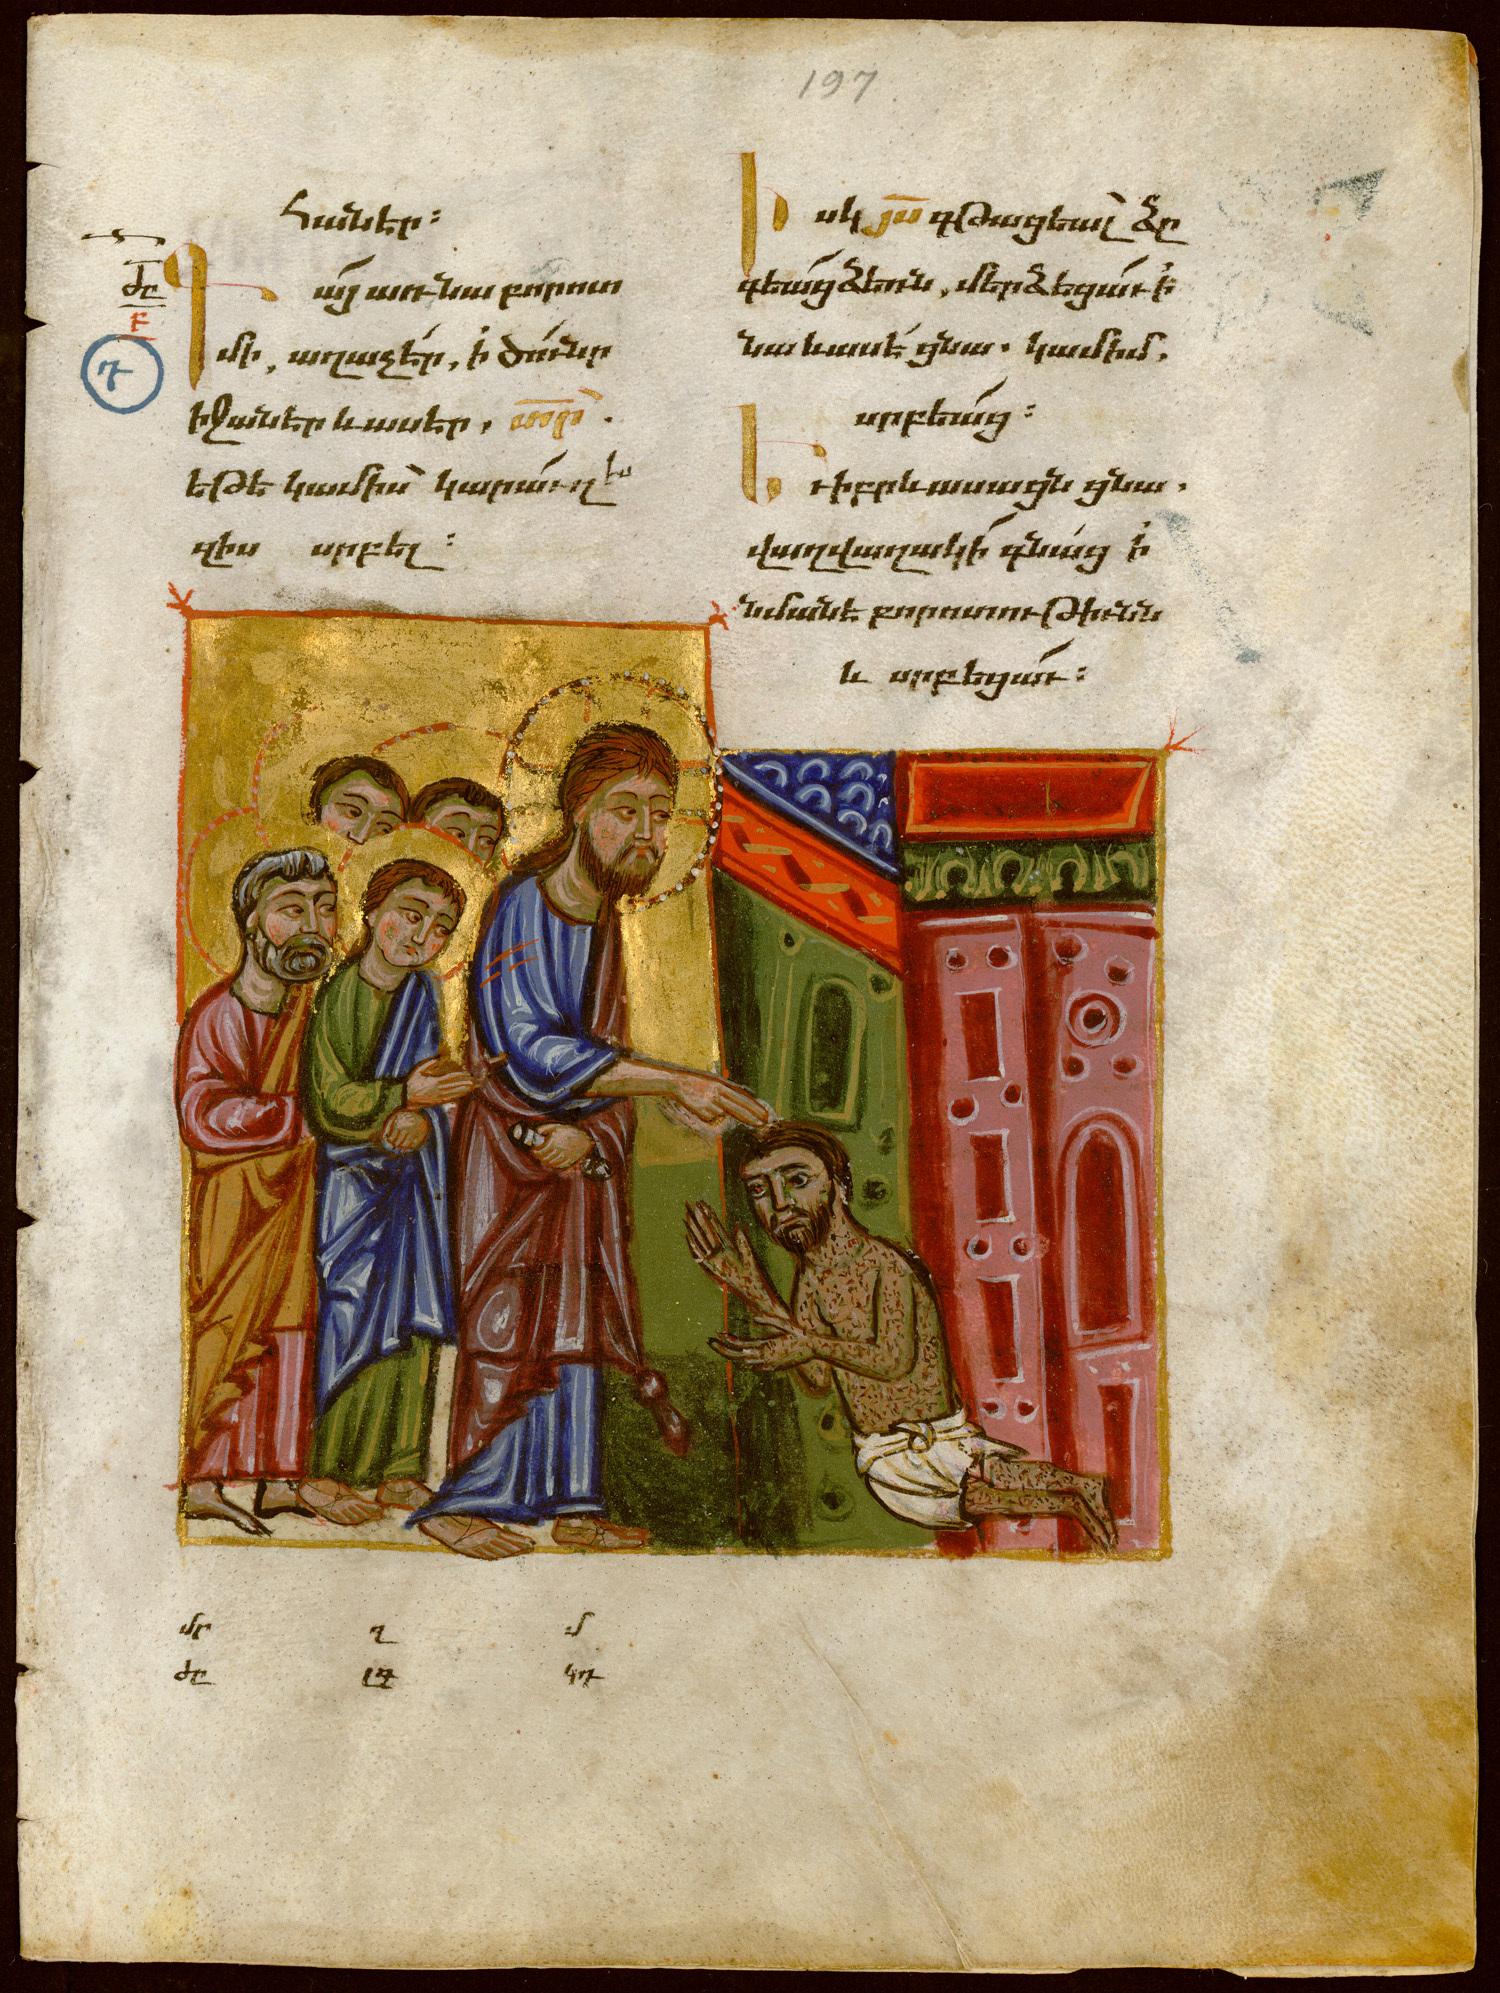 197
հաներ։
Գ այ առ նա բորոտ
մի, աղաչէր, ի ծունր
իջանէր և ասէր, տր՛.
եթե կամիս՝ կարող ես
զիս սրբել։
ԺԸ
Բ
Դ
Ի սկ յս գթացեալ՝ ձը
գեաց զձեռն, մերձեցաւ ի
նա և ասէ ցնա. կամիմ,
սրբեաց։
Ե ւ իբրև ասաց ցնա.
վաղվաղակի գնաց ի
նմանէ բորոտութիւնն
և սրբեցաւ։
մր ղ մ
ԺԸ ԼԳ ԿԴ